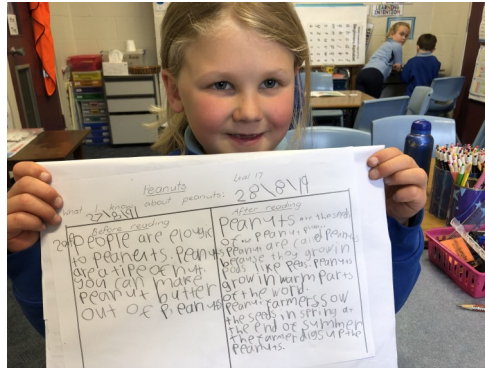 LEARNING
INTENTION
Peanuts
Level 17
What I know about peanuts:
27/8/19
28/8/19
Before reading
People are elorgic
to peanerts. Peanuts
are a tipe of nut.
you can make
peanut butter
out of Peanuts
After reading
Peanuts are the seeds
of the peanut plant.
Peanut are called peanuts
because they grow in
pods like peas. Peanuts
grow in warm parts
of the world.
Peanut farmers sow
the seeds in spring at
the end of summer
the farmer digs up the
Peanuts.